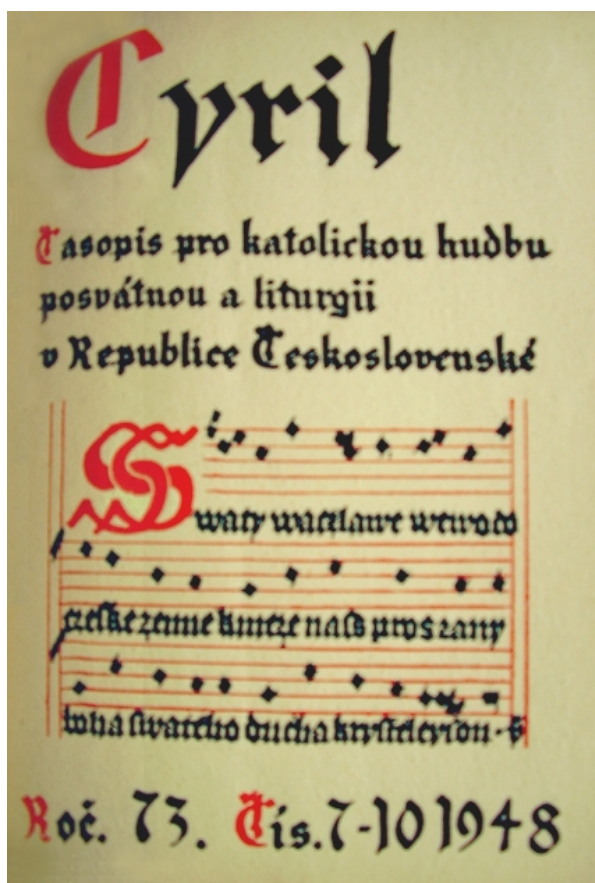 Cyril
Časopis pro katolickou hudbu
posvátnou a liturgii
v Republice Československé
Swaty waczlawe wewodo
czeske zemie kneze nass pros zany
boha swateho ducha krysteleyson
Roč. 73. Čís. 7-10 1948